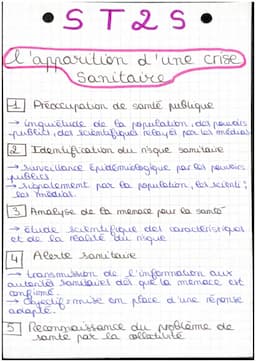 • ST2S •
L'apparition d'une crise
Sanitaire
1 Préoccupation de santé publique
→ inquiétude de la population, des pouvoirs
publics, des scientifiques relayés par les médias
2 Identification du risque sanitaire
→ surveillance épidémiologique par les pouvoirs
publics
→ signalement par la population, les scienti;
les médias.
3 Analyse de la menace pour la santé
→ étude scientifique des caractéristiques
et de la réalité du risque
4 Alerte sanitaire
→ transmission de l'information aux
autorités sanitaires dès que la menace est
confirmé.
→ Objectif = mise en place d'une réponse
adapté.
5 Reconnaissance du problème de
santé par la collectivité